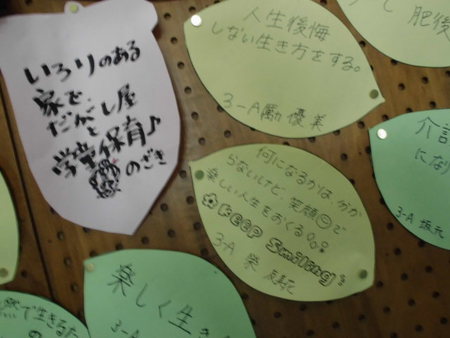 いろりのある
家で
だんごし屋
と
学童保育♪
のざき
人生後悔
しない生き方をする。
3-A 勵 優美
肥後
何になるかは分か
らないけど 笑顔で
楽しい人生をおくる
keep Smiling
3-A 栄
介護
にな
3-A 坂元
楽しく生き
3-A
然で生きるた
の